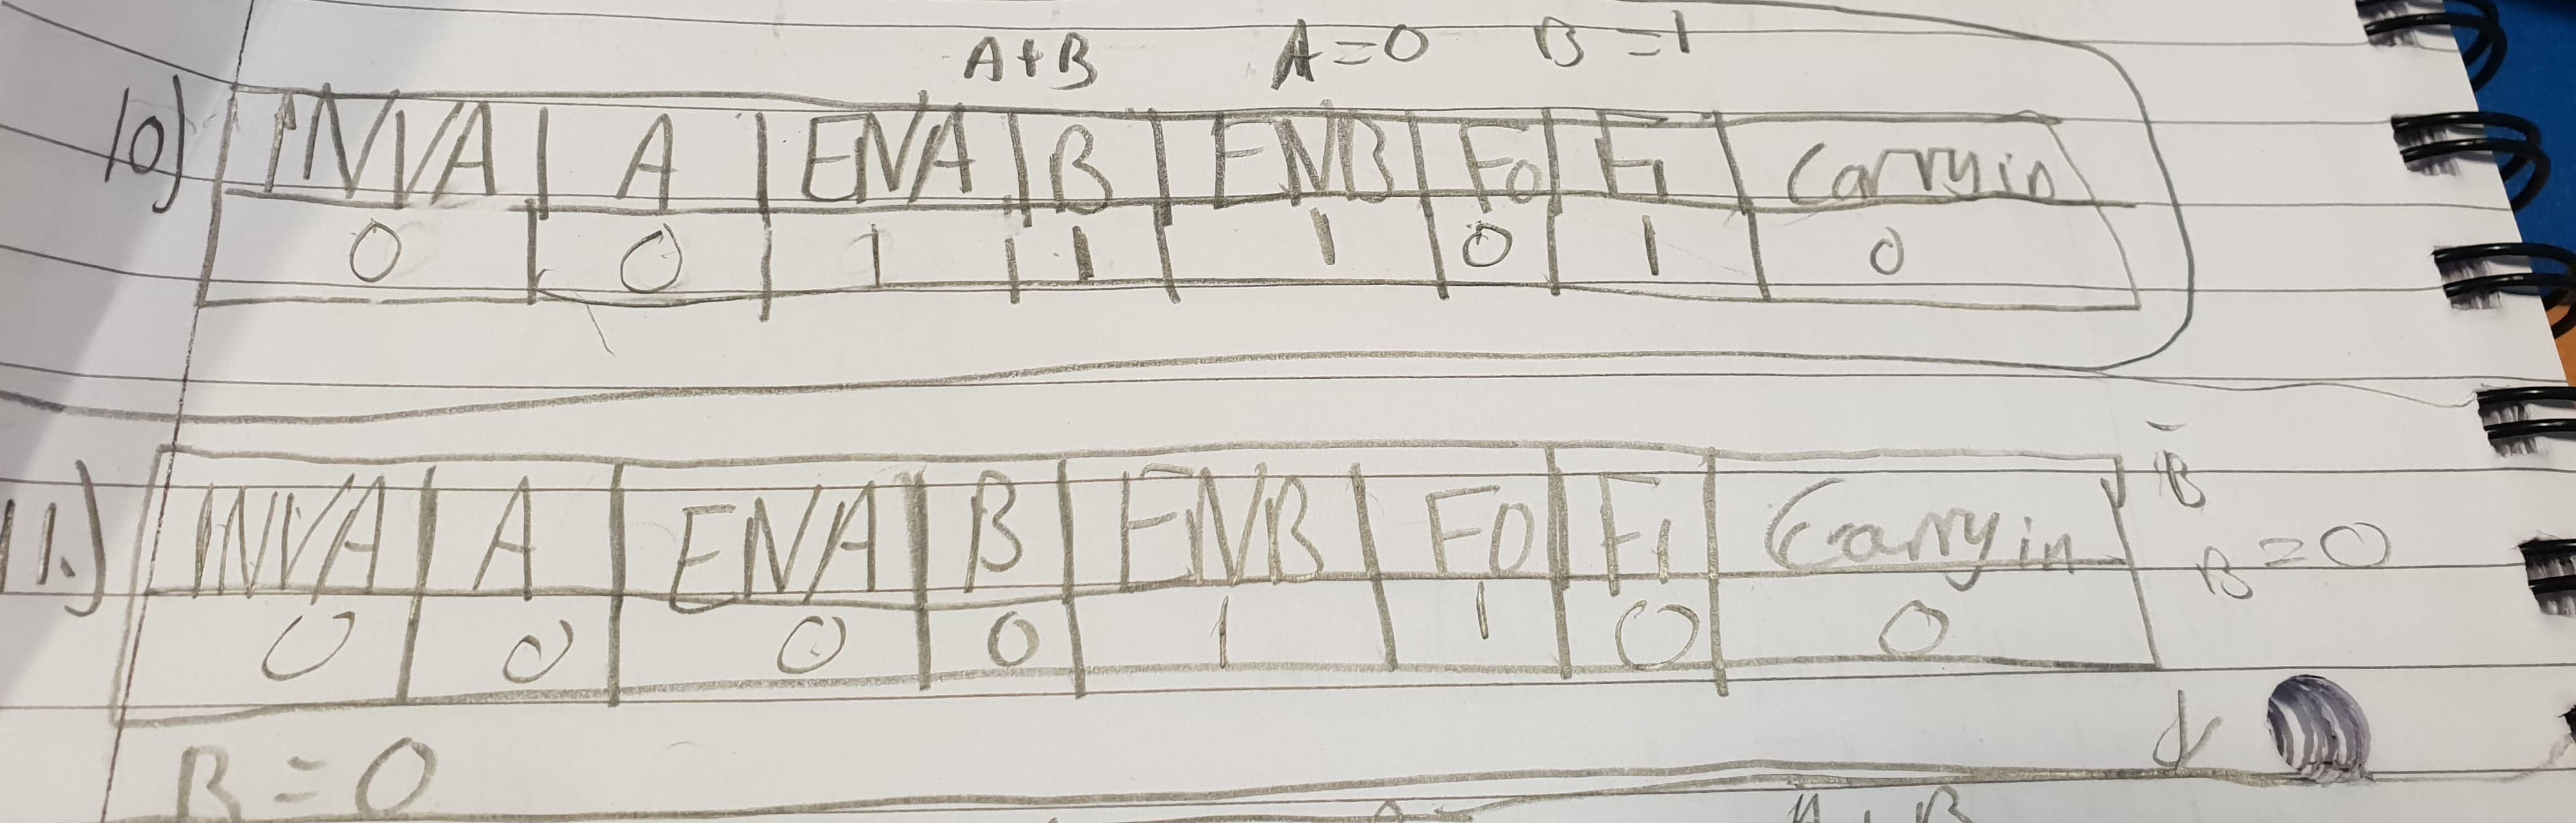 A+B A=0 B=1
10) INVA A ENA B ENB F0 F1 Carryin
0 0 1 1 1 0 1 0
11.) INVA A ENA B ENB F0 F1 Carry in B̄
0 0 0 0 1 1 0 0 B=0
B=0